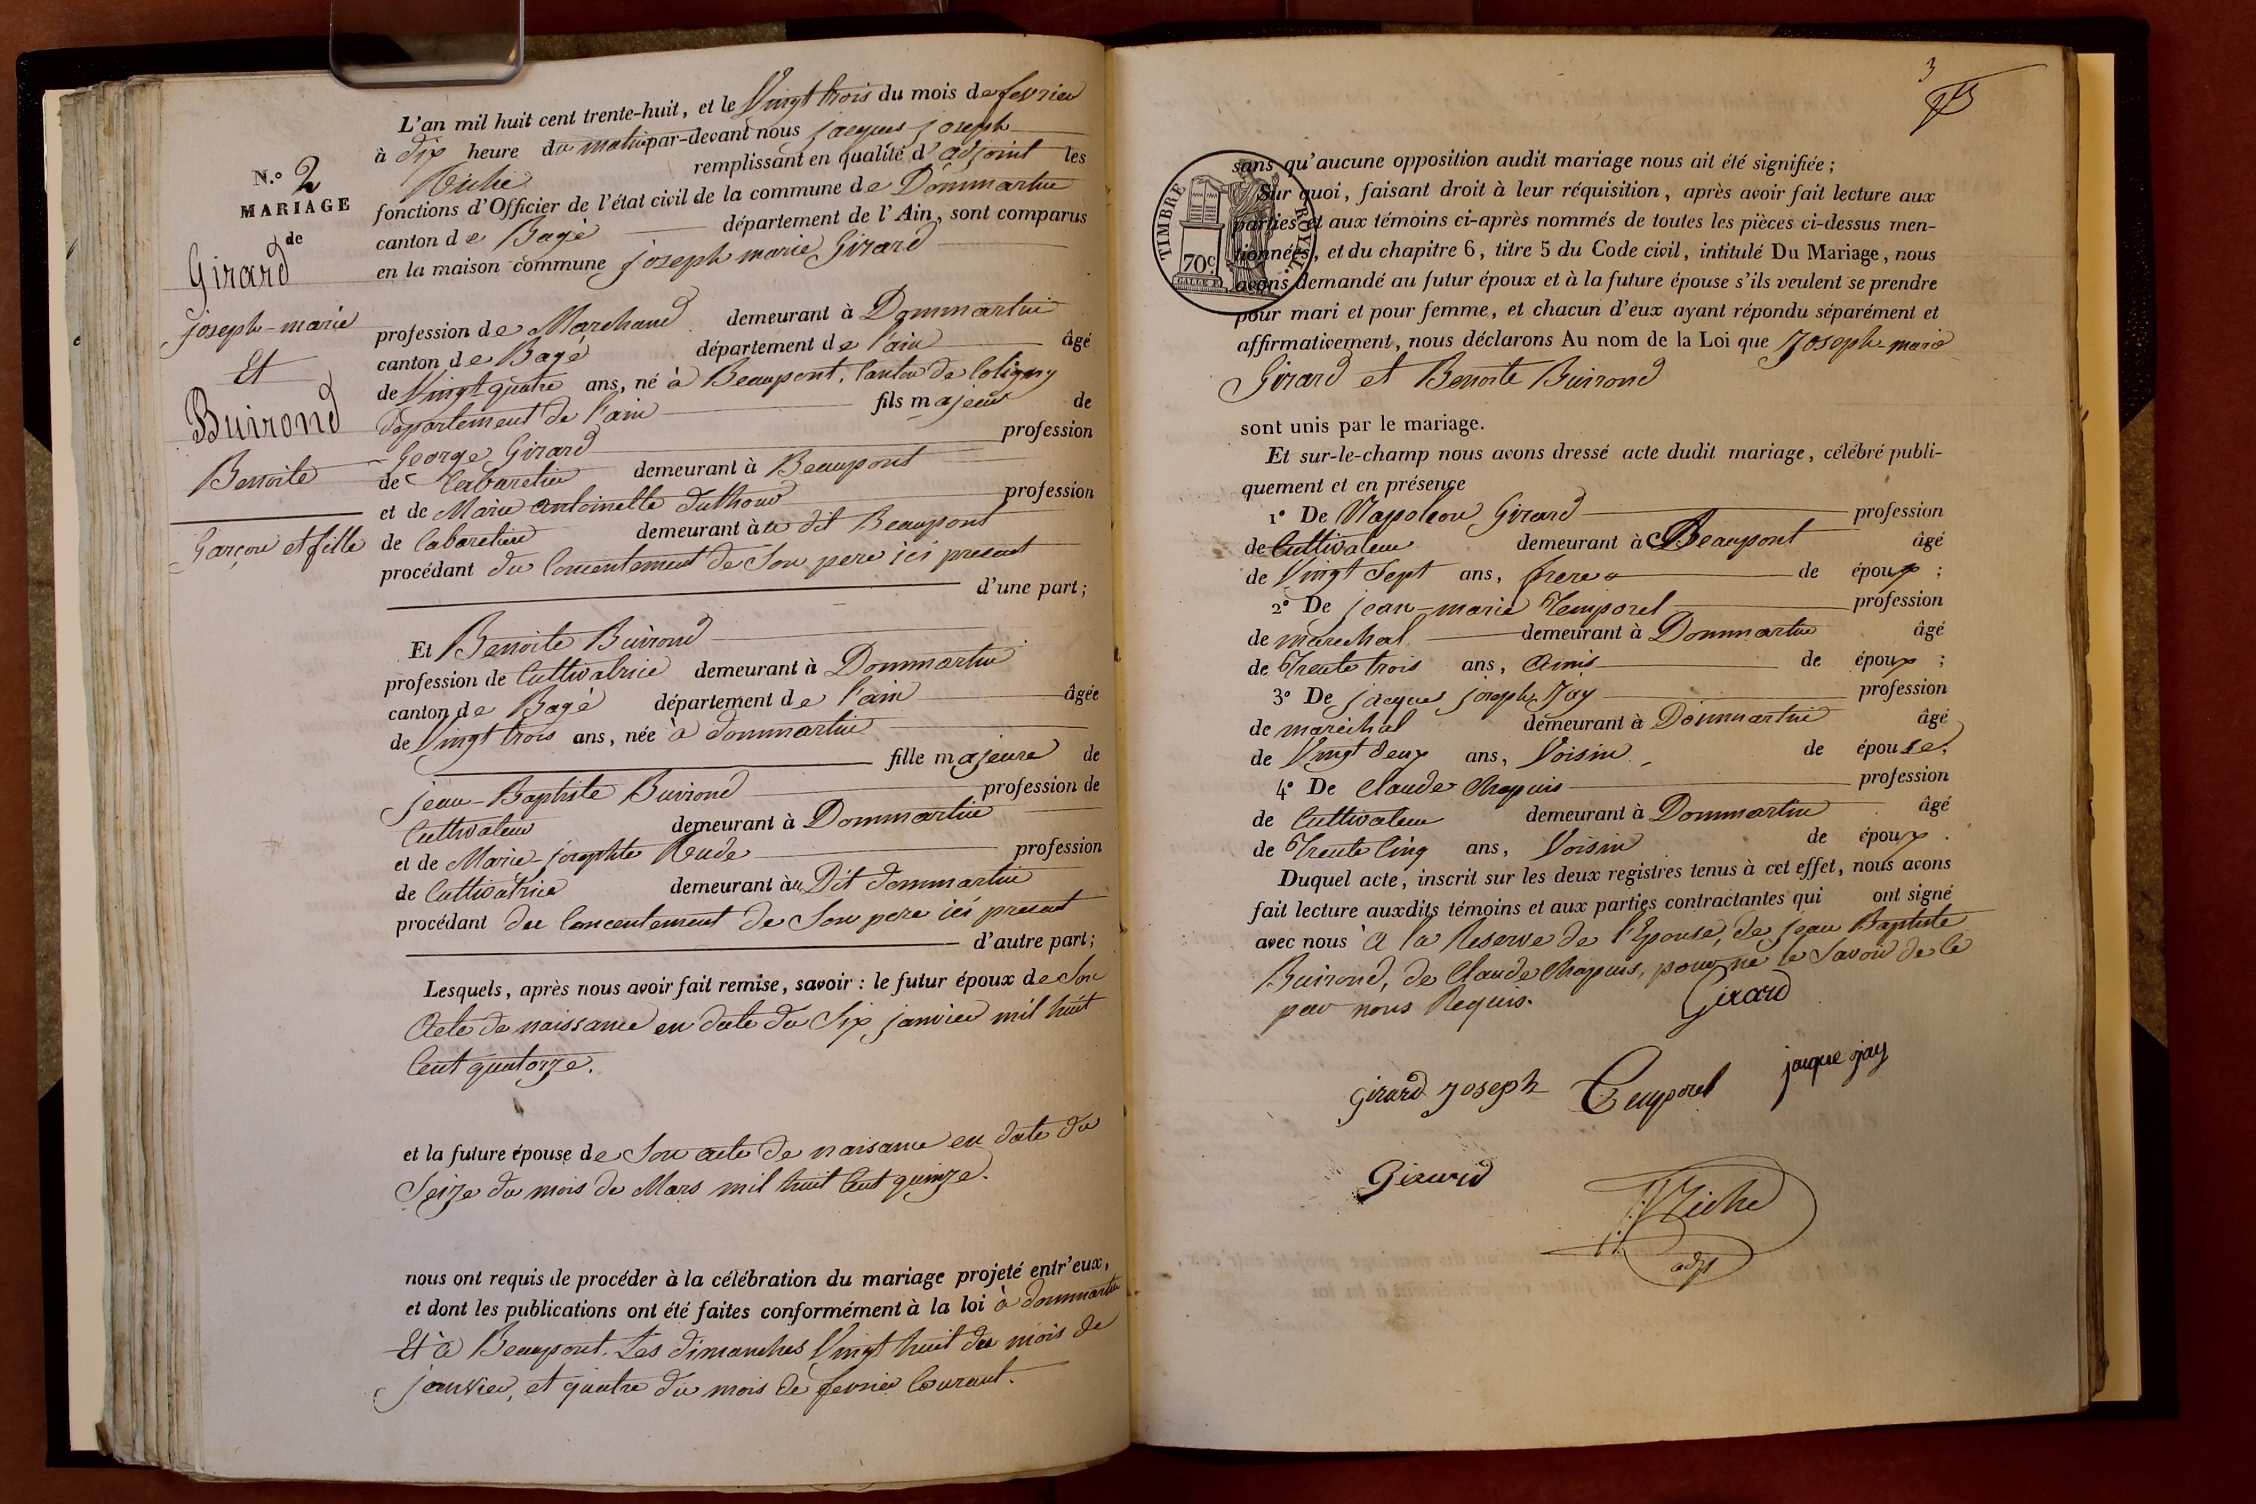 L'an mil huit cent trente-huit, et le Vingt trois du mois de fevrier
à dix heure du matin par-devant nous jacques joseph
remplissant en qualité d'adjoint les
fonctions d'Officier de l'état civil de la commune de Dommartin
canton de Bagé département de l'Ain, sont comparus
en la maison commune joseph marie Girard
N.o 2
MARIAGE
de
Girard
joseph-marie
Et
Buirond
Benoite
Garçon et fille
profession de Marchand demeurant à Dommartin
canton de Bagé département de l'ain âgé
de Vingt quatre ans, né à Beaupont, Canton de Coligny
département de l'ain fils majeur de
George Girard profession
de Cabaretier demeurant à Beaupont
et de Marie antoinette profession
de Cabaretiere demeurant à u dit Beaupont
procédant du Concentement de Son pere ici present
d'une part;
Et Benoite Buirond
profession de Cultivatrice demeurant à Dommartin
canton de Bagé département de l'ain âgée
de Vingt trois ans, née à dommartin
fille majeure de
jean-Baptiste Buirond profession de
Cultivateur demeurant à Dommartin
et de Marie-josephte profession
de Cultivatrice demeurant àu Dit dommartin
procédant du Concentement de Son pere ici present
d'autre part;
Lesquels, après nous avoir fait remise, savoir: le futur époux de Son
Acte de naissance en date du Six janvier mil huit
Cent quatorze.
et la future épouse de Son acte de naisance en date du
Seize du mois de Mars mil huit Cent quinze.
nous ont requis de procéder à la célébration du mariage projeté entr'eux,
et dont les publications ont été faites conformément à la loi à dommartin
Et à Beaupont. Les dimanches Vingt huit du mois de
janvier, et quatre du mois de fevrier Courant.
3
TIMBRE ROYAL
70c
sans qu'aucune opposition audit mariage nous ait été signifiée;
Sur quoi, faisant droit à leur réquisition, après avoir fait lecture aux
parties et aux témoins ci-après nommés de toutes les pièces ci-dessus men-
tionnées, et du chapitre 6, titre 5 du Code civil, intitulé Du Mariage, nous
avons demandé au futur époux et à la future épouse s'ils veulent se prendre
pour mari et pour femme, et chacun d'eux ayant répondu séparément et
affirmativement, nous déclarons Au nom de la Loi que Joseph marie
Girard et Benoite Buirond
sont unis par le mariage.
Et sur-le-champ nous avons dressé acte dudit mariage, célébré publi-
quement et en présence
1o De Nappoleon Girard profession
de Cultivateur demeurant à Beaupont âgé
de Vingt Sept ans, frere de époux;
2o De jean-marie Temporel profession
de marechal demeurant à Dommartin âgé
de Trente trois ans, Amis de époux;
3o De jacques joseph Jay profession
de maréchal demeurant à Dommartin âgé
de Vingt deux ans, Voisin de épouse,
4o De Claude Chapuis profession
de Cultivateur demeurant à Dommartin âgé
de Trente Cinq ans, Voisin de époux.
Duquel acte, inscrit sur les deux registres tenus à cet effet, nous avons
fait lecture auxdits témoins et aux parties contractantes qui ont signé
avec nous A la Reserve de l'Epouse, de jean Baptiste
Buirond, de Claude Chapuis, pour ne le Savoir de ce
par nous Requis.
Girard
Girard Joseph
Temporel
jaque jay
Girard
adjt